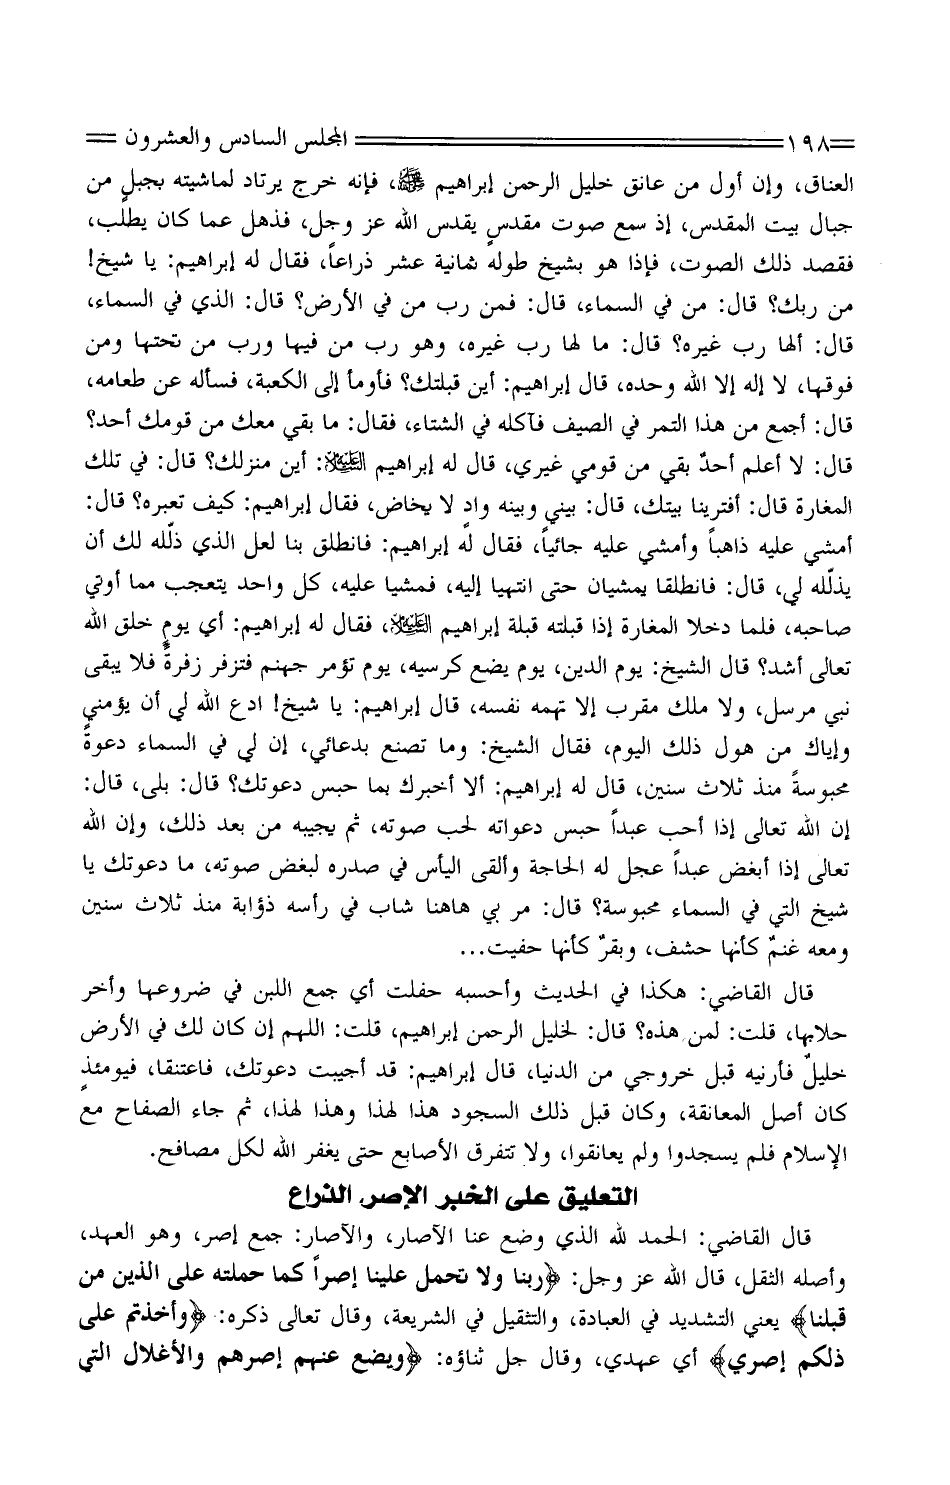 ١٩٨ المجلس السادس والعشرون
العناق، وإن أول من عانق خليل الرحمن إبراهيم ﷺ، فإنه خرج يرتاد لماشيته بجبلٍ من
جبال بيت المقدس، إذ سمع صوت مقدسٍ يقدس الله عز وجل، فذهل عما كان يطلب،
فقصد ذلك الصوت، فإذا هو بشيخ طوله ثمانية عشر ذراعاً، فقال له إبراهيم: يا شيخ!
من ربك؟ قال: من في السماء، قال: فمن رب من في الأرض؟ قال: الذي في السماء،
قال: ألها رب غيره؟ قال: ما لها رب غيره، وهو رب من فيها ورب من تحتها ومن
فوقها، لا إله إلا الله وحده، قال إبراهيم: أين قبلتك؟ فأومأ إلى الكعبة، فسأله عن طعامه،
قال: أجمع من هذا التمر في الصيف فآكله في الشتاء، فقال: ما بقي معك من قومك أحد؟
قال: لا أعلم أحدٌ بقي من قومي غيري، قال له إبراهيم التَّلِيَّالِا: أين منزلك؟ قال: في تلك
المغارة قال: أفترينا بيتك، قال: بيني وبينه وادٍ لا يخاض، فقال إبراهيم: كيف تعبره؟ قال:
أمشي عليه ذاهباً وأمشي عليه جائياً، فقال له إبراهيم: فانطلق بنا لعل الذي ذلّله لك أن
يذلّله لي، قال: فانطلقا يمشيان حتى انتهيا إليه، فمشيا عليه، كل واحد يتعجب مما أوتي
صاحبه، فلما دخلا المغارة إذا قبلته قبلة إبراهيم التَّلِيَّالِا، فقال له إبراهيم: أي يومٍ خلق الله
تعالى أشد؟ قال الشيخ: يوم الدين، يوم يضع كرسيه، يوم تؤمر جهنم فتزفر زفرةً فلا يبقى
نبي مرسل، ولا ملك مقرب إلا تهمه نفسه، قال إبراهيم: يا شيخ! ادع الله لي أن يؤمني
وإياك من هول ذلك اليوم، فقال الشيخ: وما تصنع بدعائي، إن لي في السماء دعوةً
محبوسةً منذ ثلاث سنين، قال له إبراهيم: ألا أخبرك بما حبس دعوتك؟ قال: بلى، قال:
إن الله تعالى إذا أحب عبداً حبس دعواته لحب صوته، ثم يجيبه من بعد ذلك، وإن الله
تعالى إذا أبغض عبداً عجل له الحاجة وألقى اليأس في صدره لبغض صوته، ما دعوتك يا
شيخ التي في السماء محبوسة؟ قال: مر بي هاهنا شاب في رأسه ذؤابة منذ ثلاث سنين
ومعه غنمٌ كأنها حشف، وبقرٌ كأنها حفيت...
قال القاضي: هكذا في الحديث وأحسبه حفلت أي جمع اللبن في ضروعها وأخر
حلابها، قلت: لمن هذه؟ قال: لخليل الرحمن إبراهيم، قلت: اللهم إن كان لك في الأرض
خليلٌ فأرنيه قبل خروجي من الدنيا، قال إبراهيم: قد أجيبت دعوتك، فاعتنقا، فيومئذٍ
كان أصل المعانقة، وكان قبل ذلك السجود هذا لهذا وهذا لهذا، ثم جاء الصفاح مع
الإسلام فلم يسجدوا ولم يعانقوا، ولا تتفرق الأصابع حتى يغفر الله لكل مصافح.
التعليق على الخبر الإصر، الذراع
قال القاضي: الحمد لله الذي وضع عنا الآصار، والآصار: جمع إصر، وهو العهد،
وأصله الثقل، قال الله عز وجل: ﴿ربنا ولا تحمل علينا إصراً كما حملته على الذين من
قبلنا﴾ يعني التشديد في العبادة، والتثقيل في الشريعة، وقال تعالى ذكره: ﴿وأخذتم على
ذلكم إصري﴾ أي عهدي، وقال جل ثناؤه: ﴿ويضع عنهم إصرهم والأغلال التي